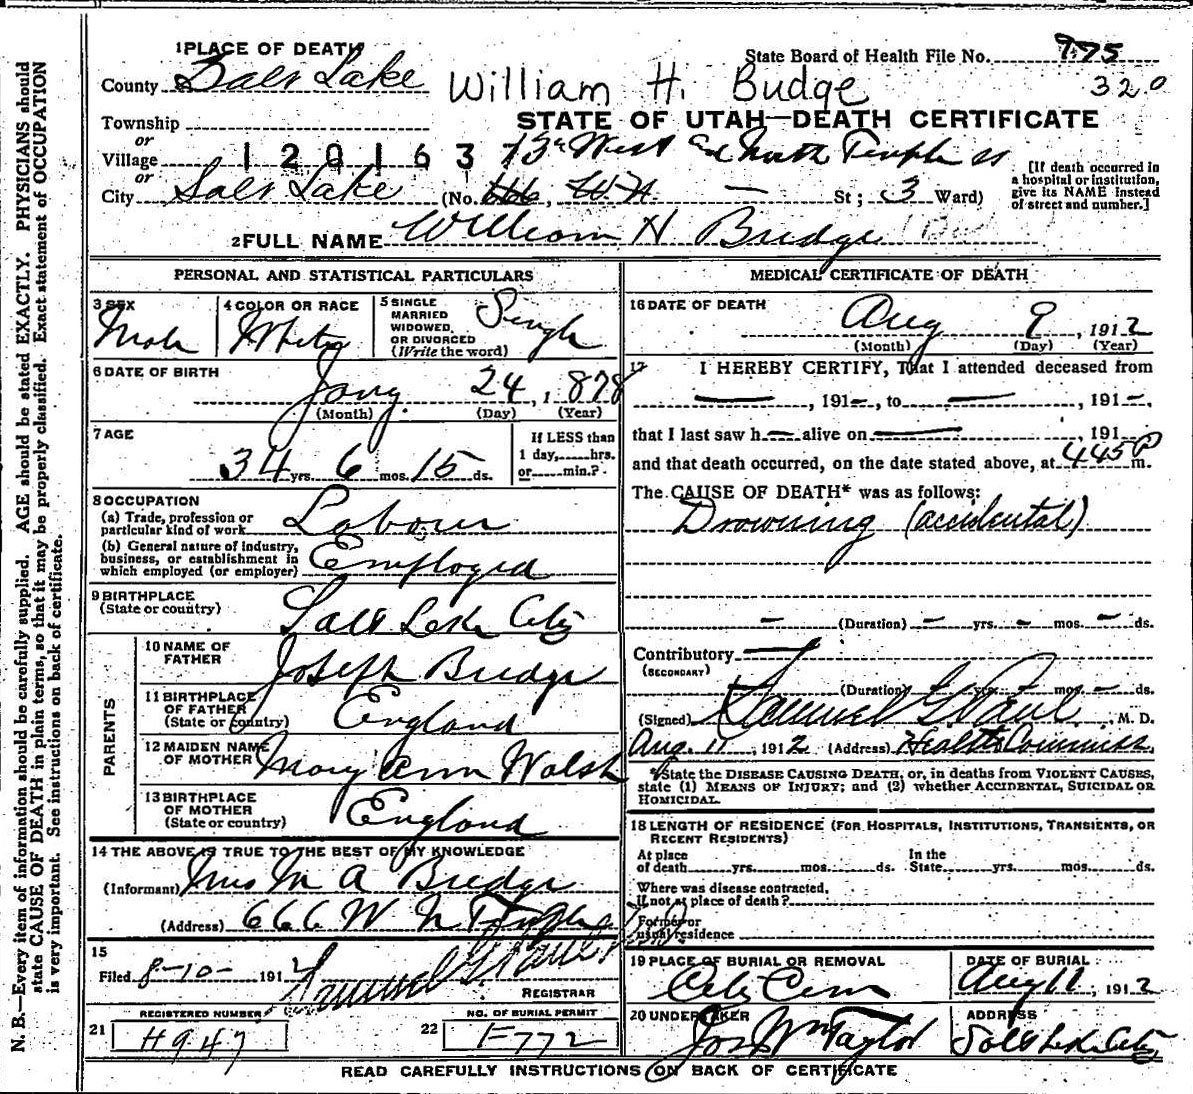 1 PLACE OF DEATH
State Board of Health File No. 975
County Salt Lake
William H. Budge
320
Township
STATE OF UTAH—DEATH CERTIFICATE
or
Village
1201637
13th West and North Temple st
or
City Salt Lake (No. 666, W. N. — St; 3 Ward)
[If death occurred in a hospital or institution, give its NAME instead of street and number.]
2 FULL NAME William H Budge
PERSONAL AND STATISTICAL PARTICULARS
3 SEX Male
4 COLOR OR RACE White
5 SINGLE MARRIED WIDOWED, OR DIVORCED (Write the word) Single
6 DATE OF BIRTH Jany. 24, 1878
(Month) (Day) (Year)
7 AGE 34 yrs. 6 mos. 15 ds.
If LESS than 1 day, hrs. or min.?
8 OCCUPATION
(a) Trade, profession or particular kind of work Labour
(b) General nature of industry, business, or establishment in which employed (or employer) Employed
9 BIRTHPLACE
(State or country) Salt Lake City
PARENTS
10 NAME OF FATHER Joseph Budge
11 BIRTHPLACE OF FATHER (State or country) England
12 MAIDEN NAME OF MOTHER Mary Ann Walsh
13 BIRTHPLACE OF MOTHER (State or country) England
14 THE ABOVE IS TRUE TO THE BEST OF MY KNOWLEDGE
(Informant) Mrs M A Budge
(Address) 666 W N Temple
15
Filed 8-10- 1912
REGISTRAR
REGISTERED NUMBER
21 H947
NO. OF BURIAL PERMIT
22 F772
MEDICAL CERTIFICATE OF DEATH
16 DATE OF DEATH Aug 9, 1912
(Month) (Day) (Year)
17 I HEREBY CERTIFY, That I attended deceased from
—, 191—, to —, 191—,
that I last saw h— alive on —, 191
and that death occurred, on the date stated above, at 445 P m.
The CAUSE OF DEATH* was as follows:
Drowning (accidental)
— (Duration) — yrs. — mos. — ds.
Contributory —
(SECONDARY)
(Duration) yrs. mos. — ds.
(Signed) Samuel G Paul, M. D.
Aug. 11, 1912 (Address) Health Commiss.
*State the DISEASE CAUSING DEATH, or, in deaths from VIOLENT CAUSES,
state (1) MEANS OF INJURY; and (2) whether ACCIDENTAL, SUICIDAL OR
HOMICIDAL.
18 LENGTH OF RESIDENCE (FOR HOSPITALS, INSTITUTIONS, TRANSIENTS, OR
RECENT RESIDENTS)
At place of death yrs. mos. ds. In the State yrs. mos. ds.
Where was disease contracted,
if not at place of death?
Former or
usual residence
19 PLACE OF BURIAL OR REMOVAL City Cem
DATE OF BURIAL Aug 11, 1912
20 UNDERTAKER Jos Wm Taylor
ADDRESS Salt Lake City
READ CAREFULLY INSTRUCTIONS ON BACK OF CERTIFICATE
N. B.—Every item of information should be carefully supplied. AGE should be stated EXACTLY. PHYSICIANS should
state CAUSE OF DEATH in plain terms, so that it may be properly classified. Exact statement of OCCUPATION
is very important. See instructions on back of certificate.